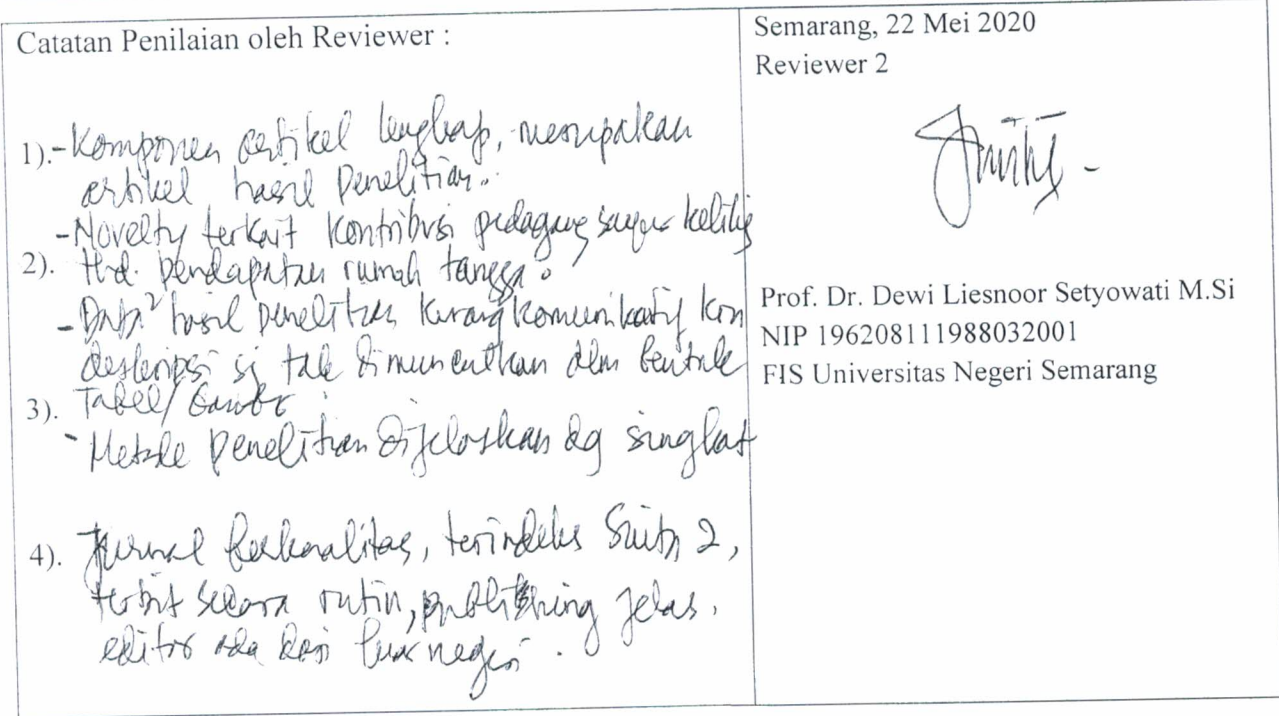 Catatan Penilaian oleh Reviewer :
1).-Komponen artikel lengkap, merupakan
artikel hasil Penelitian.
-Novelty terkait Kontribusi pedagang sayur keliling
2). thd. pendapatan rumah tangga.
-Data² hasil penelitian kurang komunikatif krn
deskripsi sj tak dimunculkan dlm bentuk
3). Tabel/Gambar.
-Metode Penelitian dijelaskan dg singkat
4). Jurnal berkualitas, terindeks Sinta 2,
terbit secara rutin, publishing jelas.
editor ada dari luar negeri.
Semarang, 22 Mei 2020
Reviewer 2
Prof. Dr. Dewi Liesnoor Setyowati M.Si
NIP 196208111988032001
FIS Universitas Negeri Semarang